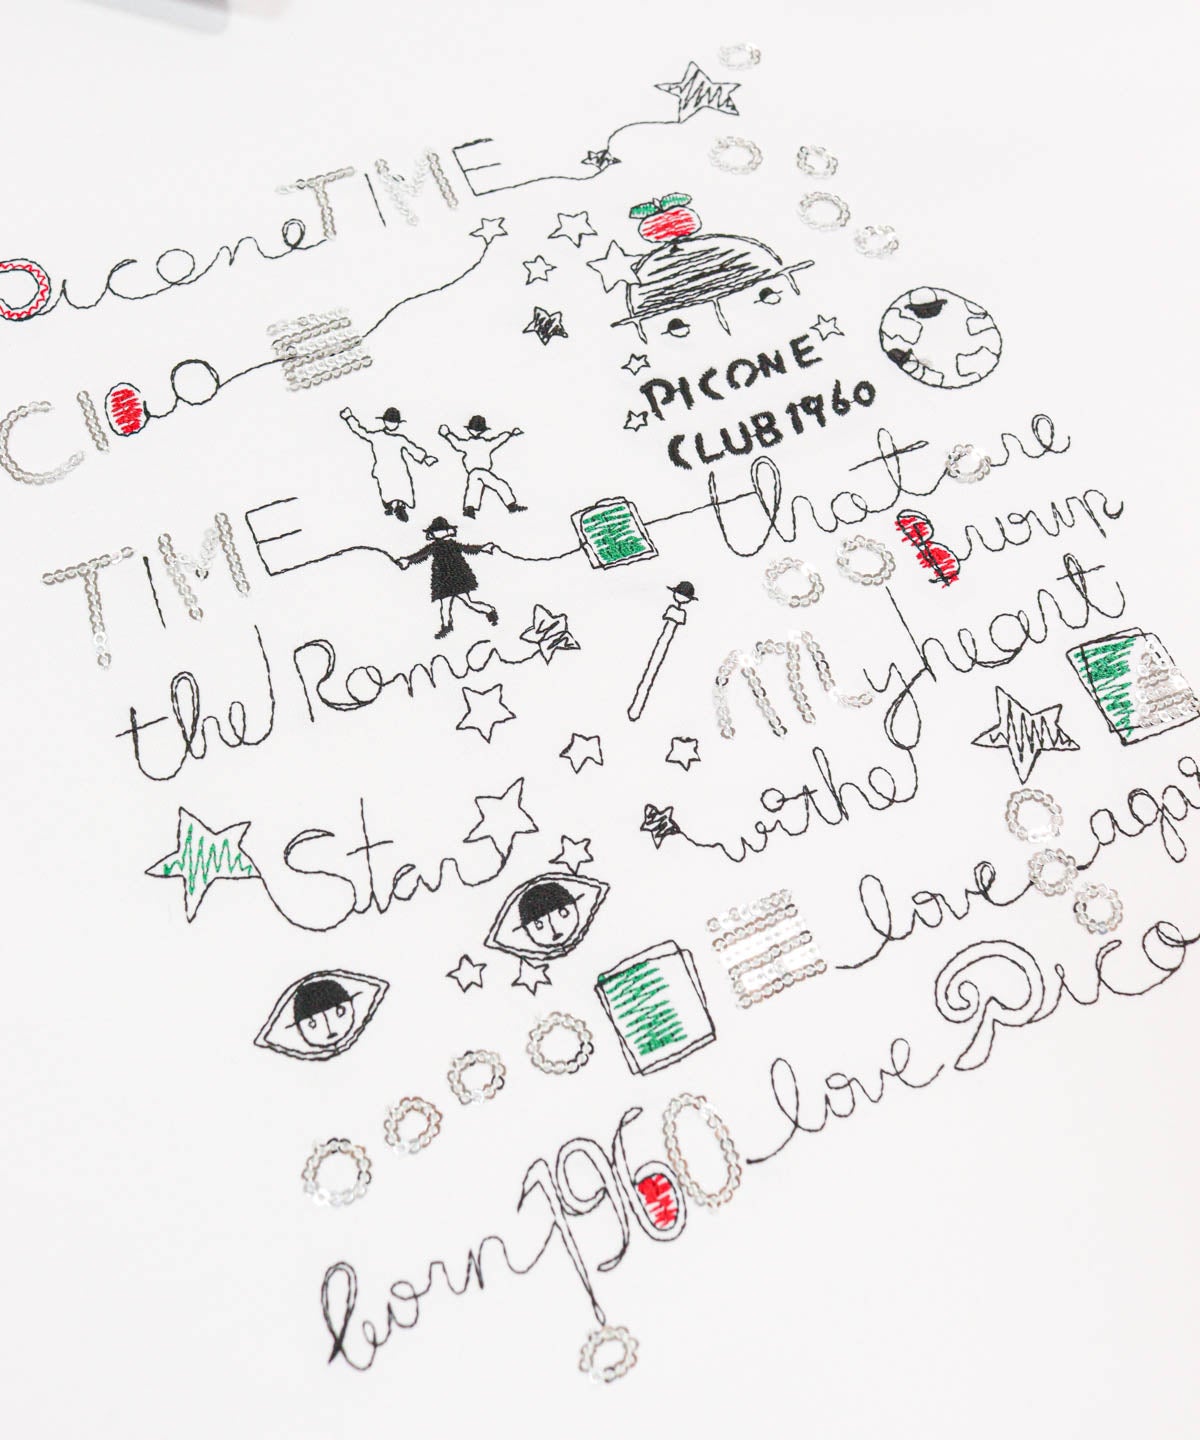 Picone TIME
Ciao
PICONE
CLUB 1960
TIME that are
Burup
the Roma
My heart
Star withe
love again
born 1960 love Pico